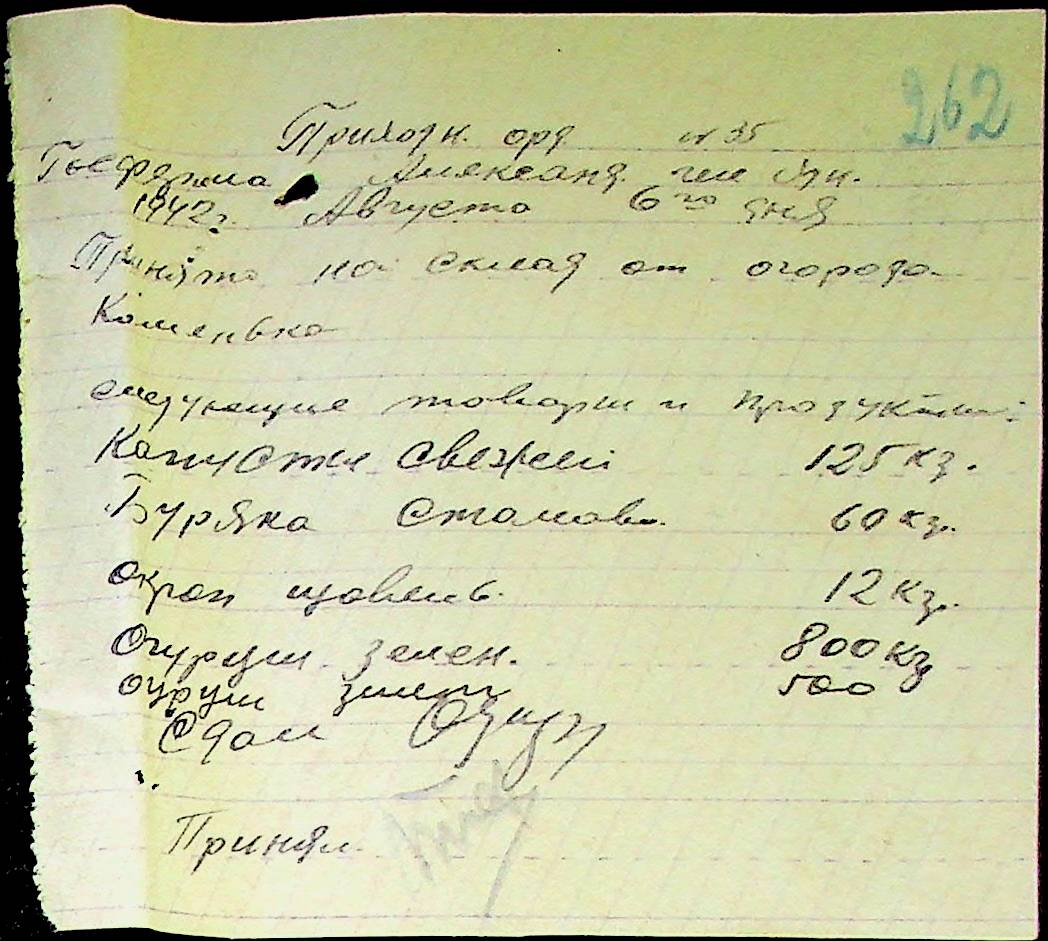 262
Приходн. орд № 35
Госферма Александ.
1942г. Августа 6го дня
Принято на склад от огорода
Каменька
следующие товары и продукты:
Капусты свежей 125 кг.
Буряка столово. 60 кг.
окроп щовель. 12 кг.
Огурцы зелен. 800 кг
огурцы зелен 500
Сдал
Принял